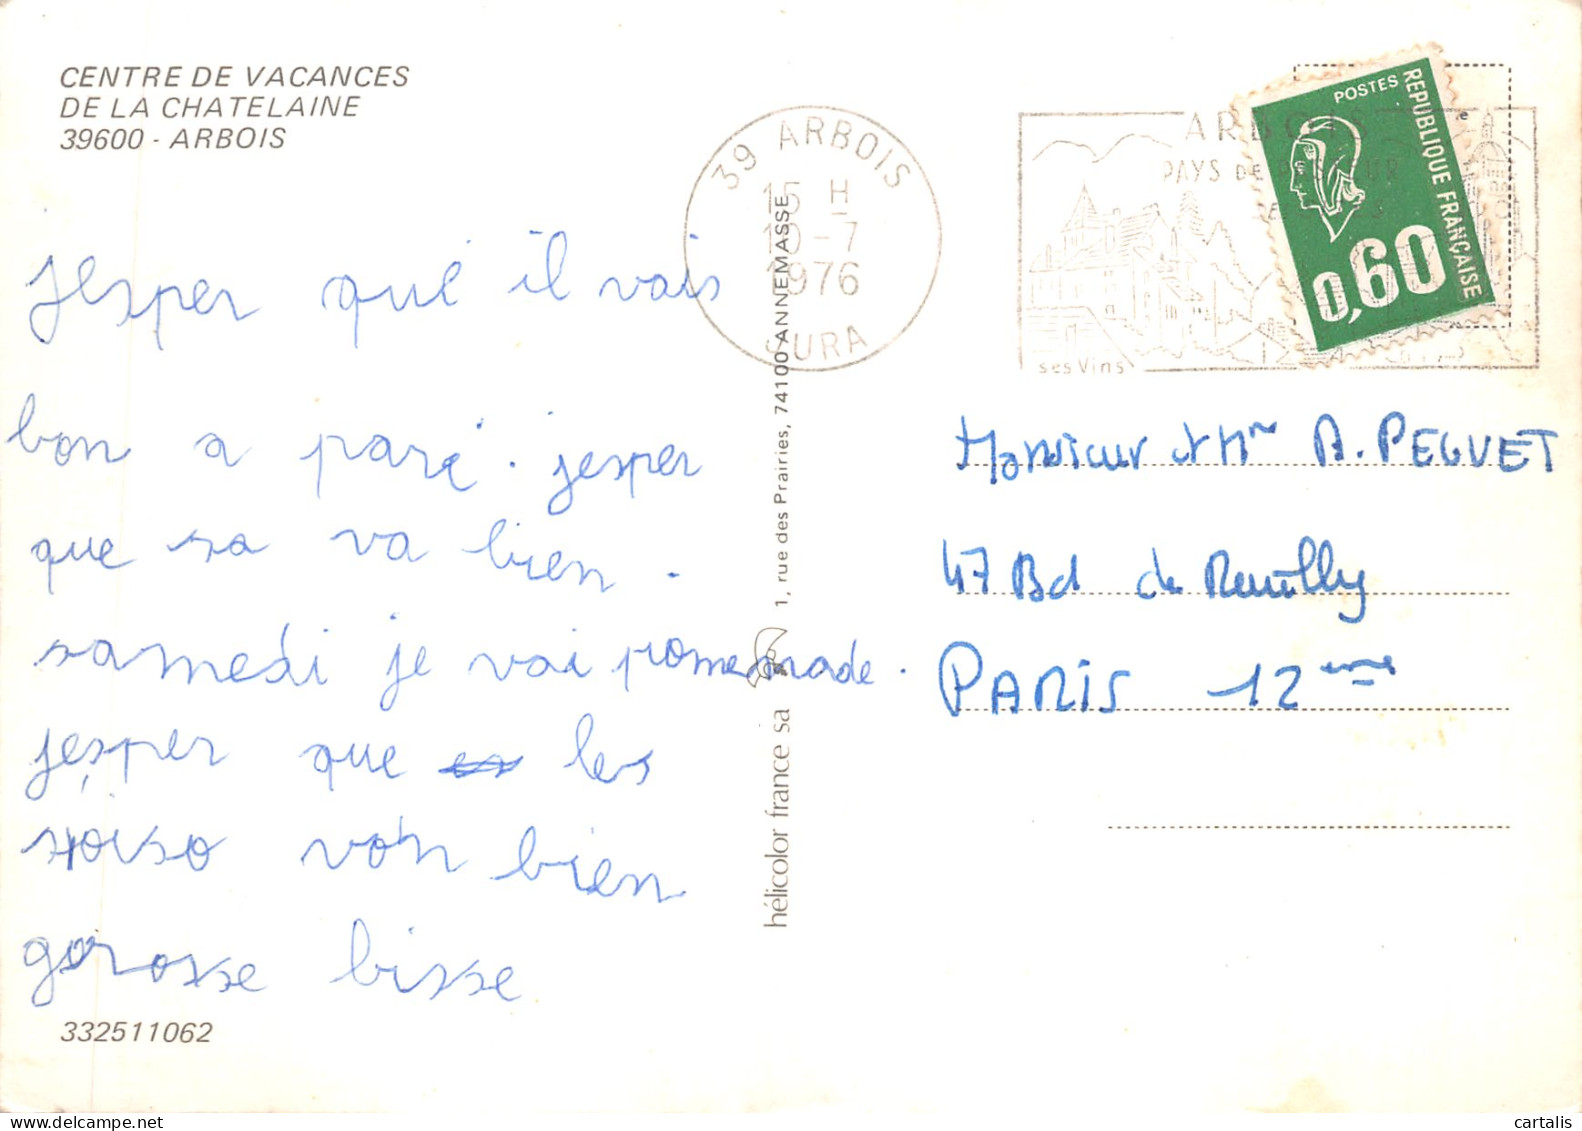 CENTRE DE VACANCES
DE LA CHATELAINE
39600 - ARBOIS
jesper qué il vais
bon a paré. jesper
que sa va bien.
samedi je vai promenade.
jesper que les
soiso von bien
gorosse bisse
332511062
39 ARBOIS
15 H
10-7
1976
JURA
ARBOIS
PAYS DE PASTEUR
ses Vins
POSTES
REPUBLIQUE FRANÇAISE
0,60
hélicolor france sa 1, rue des Prairies, 74100 ANNEMASSE
Monsieur et Mme A. PEGUET
47 Bd de Reuilly
PARIS 12eme
cartalis